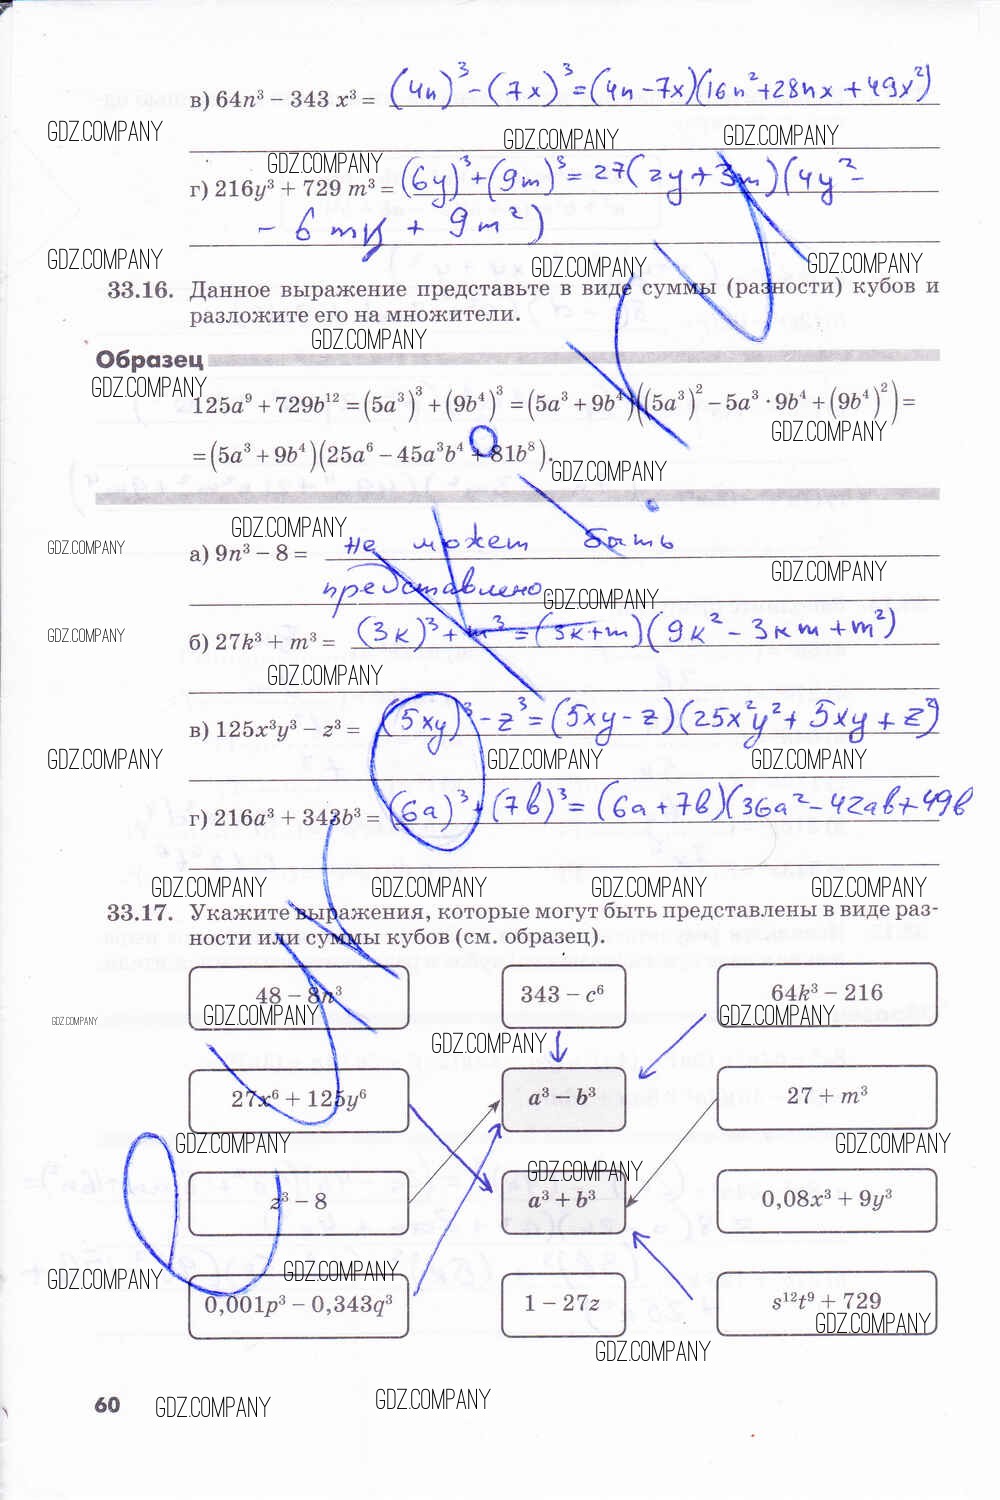 в) 64n³ − 343 x³ = (4n)³ − (7x)³ = (4n−7x)(16n²+28nx+49x²)
GDZ.COMPANY GDZ.COMPANY GDZ.COMPANY
GDZ.COMPANY
г) 216y³ + 729 m³ = (6y)³+(9m)³= 27(2y+3m)(4y²−
− 6my + 9m²)
GDZ.COMPANY GDZ.COMPANY GDZ.COMPANY
33.16. Данное выражение представьте в виде суммы (разности) кубов и
разложите его на множители.
GDZ.COMPANY
Образец
GDZ.COMPANY
125a⁹ + 729b¹² = (5a³)³ + (9b⁴)³ = (5a³ + 9b⁴)((5a³)² − 5a³ · 9b⁴ + (9b⁴)²) =
GDZ.COMPANY
= (5a³ + 9b⁴)(25a⁶ − 45a³b⁴ + 81b⁸).
GDZ.COMPANY
GDZ.COMPANY
GDZ.COMPANY
а) 9n³ − 8 = не может быть
GDZ.COMPANY
представлено
GDZ.COMPANY
GDZ.COMPANY
б) 27k³ + m³ = (3к)³+m³=(3к+m)(9к²−3кm+m²)
GDZ.COMPANY
в) 125x³y³ − z³ = (5xy)³−z³=(5xy−z)(25x²y²+5xy+z²)
GDZ.COMPANY GDZ.COMPANY GDZ.COMPANY
г) 216a³ + 343b³ = (6a)³+(7b)³=(6a+7b)(36a²−42ab+49b
GDZ.COMPANY GDZ.COMPANY GDZ.COMPANY GDZ.COMPANY
33.17. Укажите выражения, которые могут быть представлены в виде раз-
ности или суммы кубов (см. образец).
48 − 8n³ 343 − c⁶ 64k³ − 216
GDZ.COMPANY GDZ.COMPANY GDZ.COMPANY
GDZ.COMPANY
27x⁶ + 125y⁶ a³ − b³ 27 + m³
GDZ.COMPANY GDZ.COMPANY
GDZ.COMPANY
z³ − 8 a³ + b³ 0,08x³ + 9y³
GDZ.COMPANY GDZ.COMPANY
0,001p³ − 0,343q³ 1 − 27z s¹²t⁹ + 729
GDZ.COMPANY
GDZ.COMPANY
60 GDZ.COMPANY GDZ.COMPANY